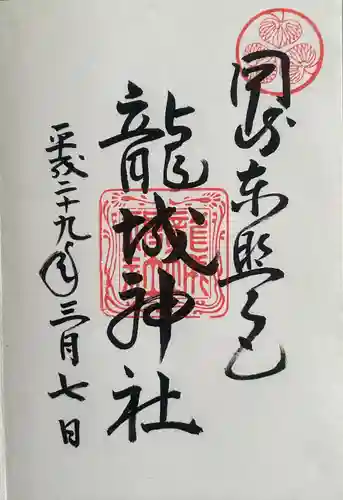 岡崎東照宮
龍城神社
平成二十九年三月七日
龍城神社